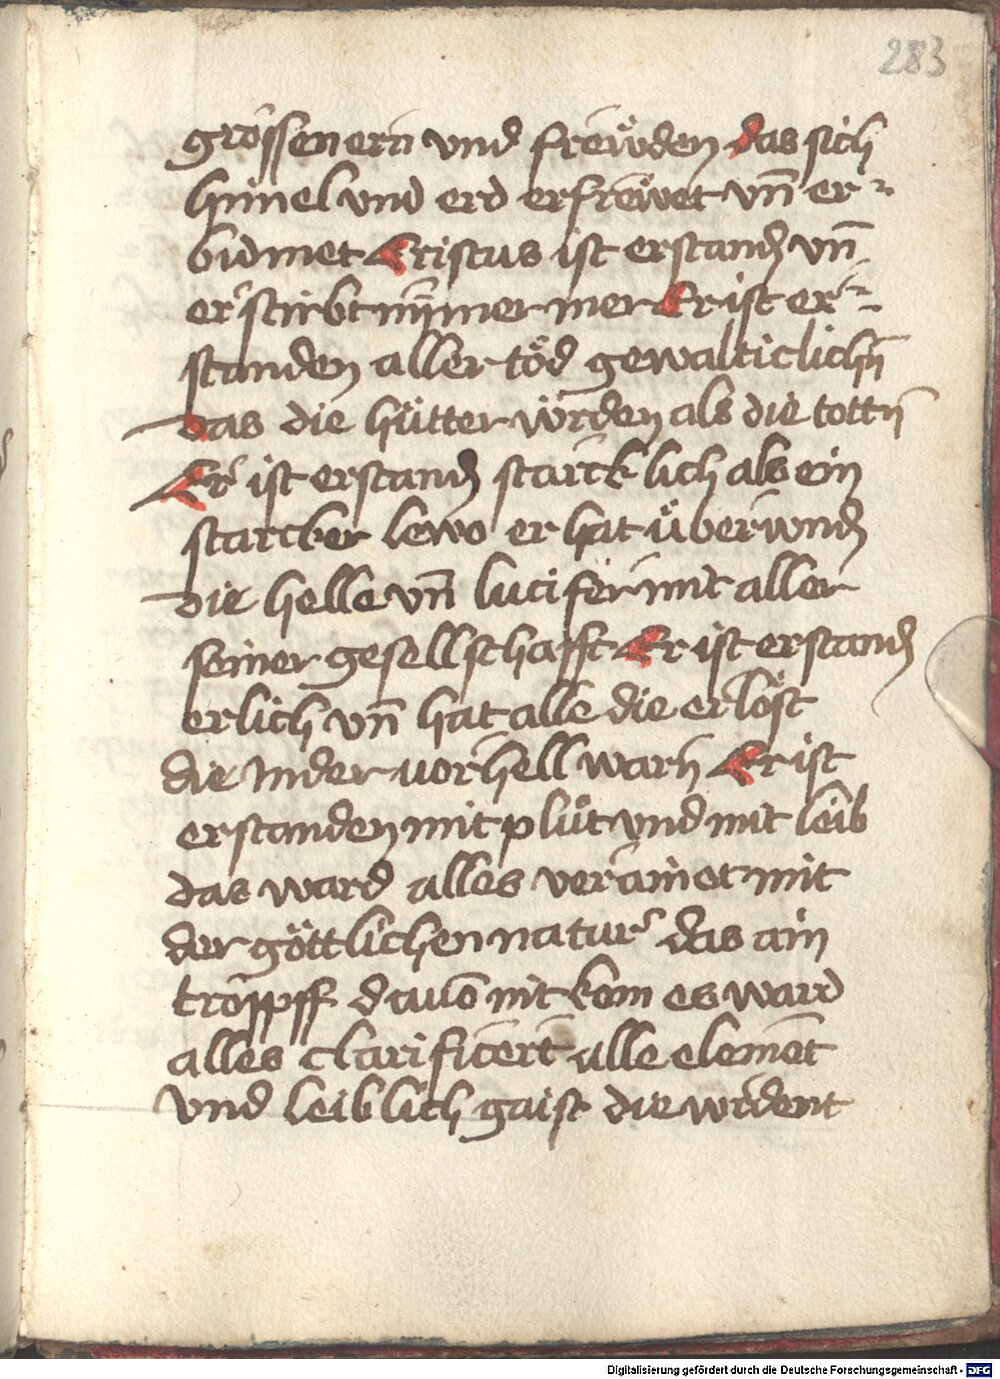 283
grössen ern und frewͤden das sich
himel vnd erd erfrewet vn̄ er=
bidmet Cristus ist erstanden vn̄
er stirbt nymmer mer Er ist er=
standen aller töd gewalticlichn̄
das die hütter würden als die tottn̄
Er ist erstanden starcklich als ein
starcker lewo er hat überwunden
die helle vn̄ lucifer mit aller
seiner gesellschafft Er ist erstanden
erlich vn̄ hat alle die erlöst
die In der vorhell warn Er ist
erstanden mit plüt vnd mit leib
das ward alles verainet mit
der göttlichen natur das ain
tropff dauō nit kom es ward
alles clarificert alle elemēt
vnd leiblich gaist die wrdent
Digitalisierung gefördert durch die Deutsche Forschungsgemeinschaft - DFG